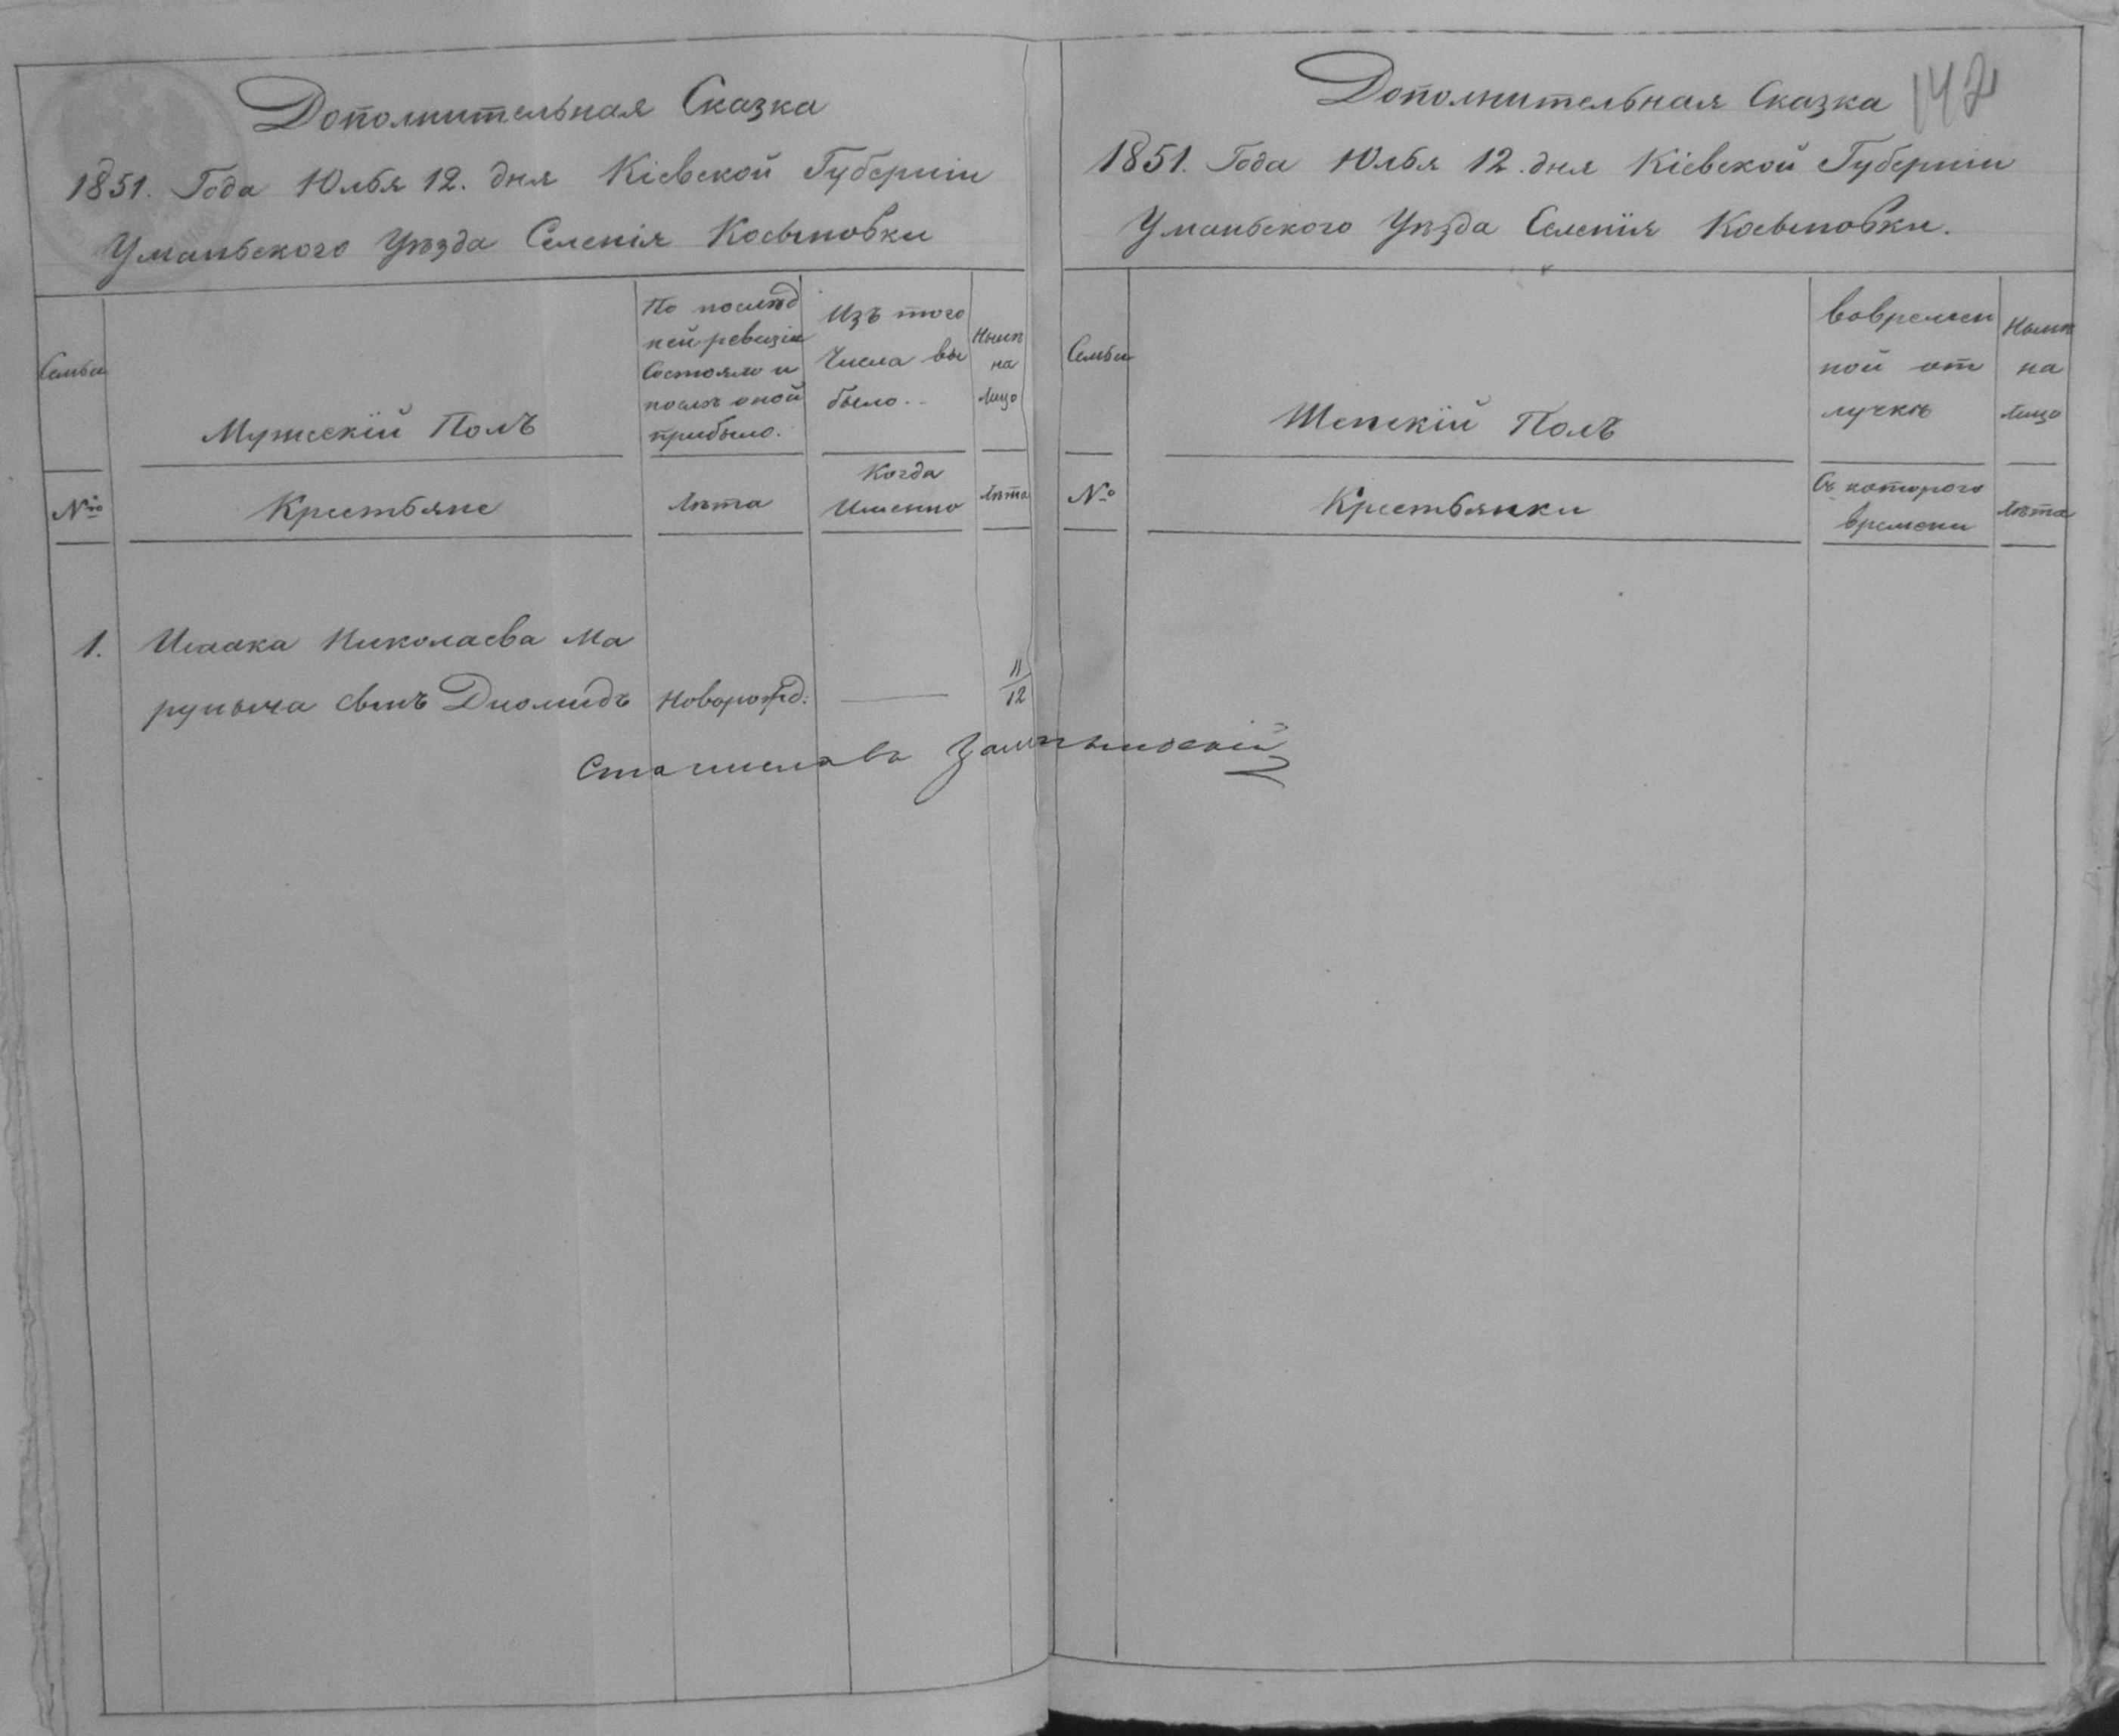 Дополнительная Сказка
1851. Года Юлья 12. дня Кіевской Губерніи
Уманьского Уѣзда Селенія Косыновки
Семьи
Мужескій Полъ
По послѣд
ней ревизіи
Состояло и
послѣ оной
прибыло.
Изъ того
Числа вы
было.
Нынѣ
на
лицо
№
Крестьяне
Лѣта
Когда
Именно
Лѣта
1.
Исаака Николаева Ма
сынъ Диомидъ
Новорожд:
11/12
Станиславъ
Дополнительная Сказка
142
1851. Года Юлья 12. дня Кіевской Губерніи
Уманьского Уѣзда Селенія Косыновки.
Семьи
Женскій Полъ
Вовремен
ной от
лучкѣ
Нынѣ
на
лицо
№
Крестьянки
Съ которого
времени
Лѣта